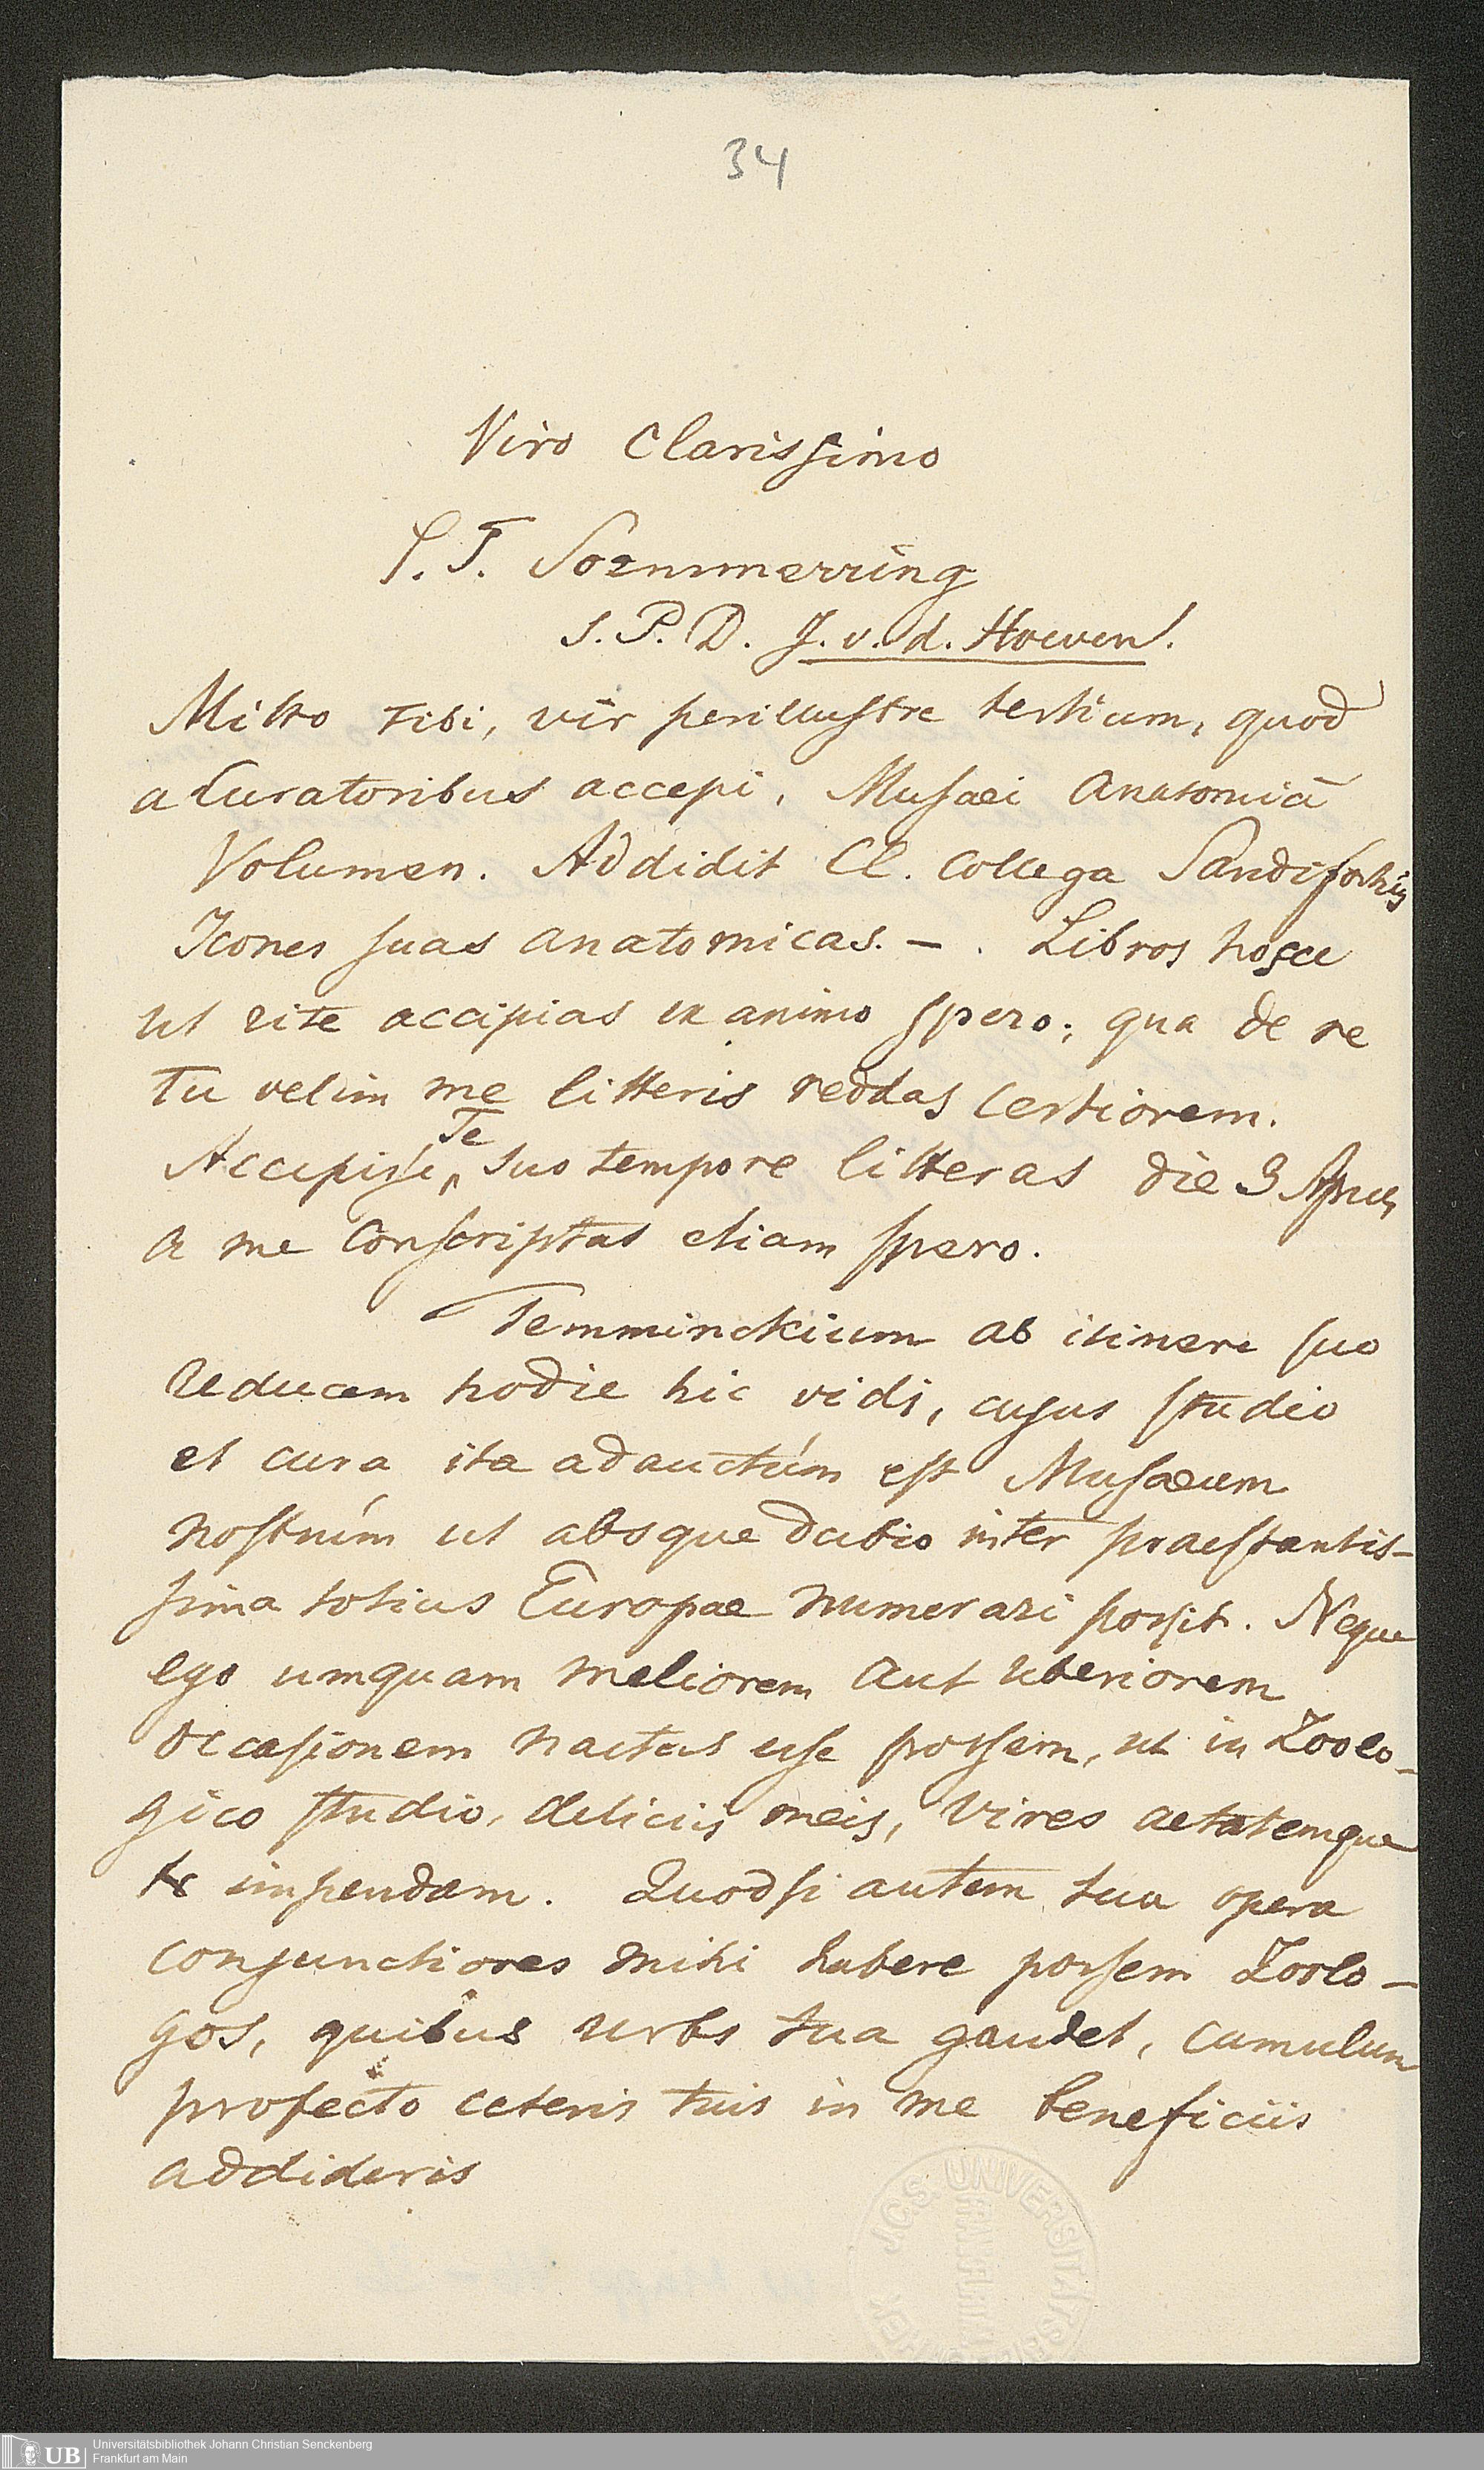 34
Viro Clarissimo
S. T. Soemmerring
S. P. D. J. v. d. Hoeven.
Mitto Tibi, vir perillustre tertium, quod
a Curatoribus accepi, Musaei Anatomici
Volumen. Addidit Cl. Collega Sandifortius
Icones suas anatomicas. — . Libros hosce
ut rite accipias ex animo spero; qua de re
Tu velim me litteris reddas certiorem.
Accepisse Te suo tempore litteras die 3
a me conscriptas etiam spero.
Temminckium ab itinere suo
reducem hodie hic vidi, cujus studio
et cura ita adauctum est Musaeum
nostrum ut absque dubio inter praestantis-
sima totius Europae numerari possit. Neque
ego umquam meliorem aut uberiorem
occasionem nactus esse possem, ut in Zoolo-
gico studio, deliciis meis, vires aetatemque
impendam. Quodsi autem tua opera
conjunctiores mihi habere possem Zoolo-
gos, quibus urbs tua gaudet, cumulum
profecto ceteris tuis in me beneficiis
addideris
J.C.S. UNIVERSITÄTSB
FRANKFURT
UB
Universitätsbibliothek Johann Christian Senckenberg
Frankfurt am Main